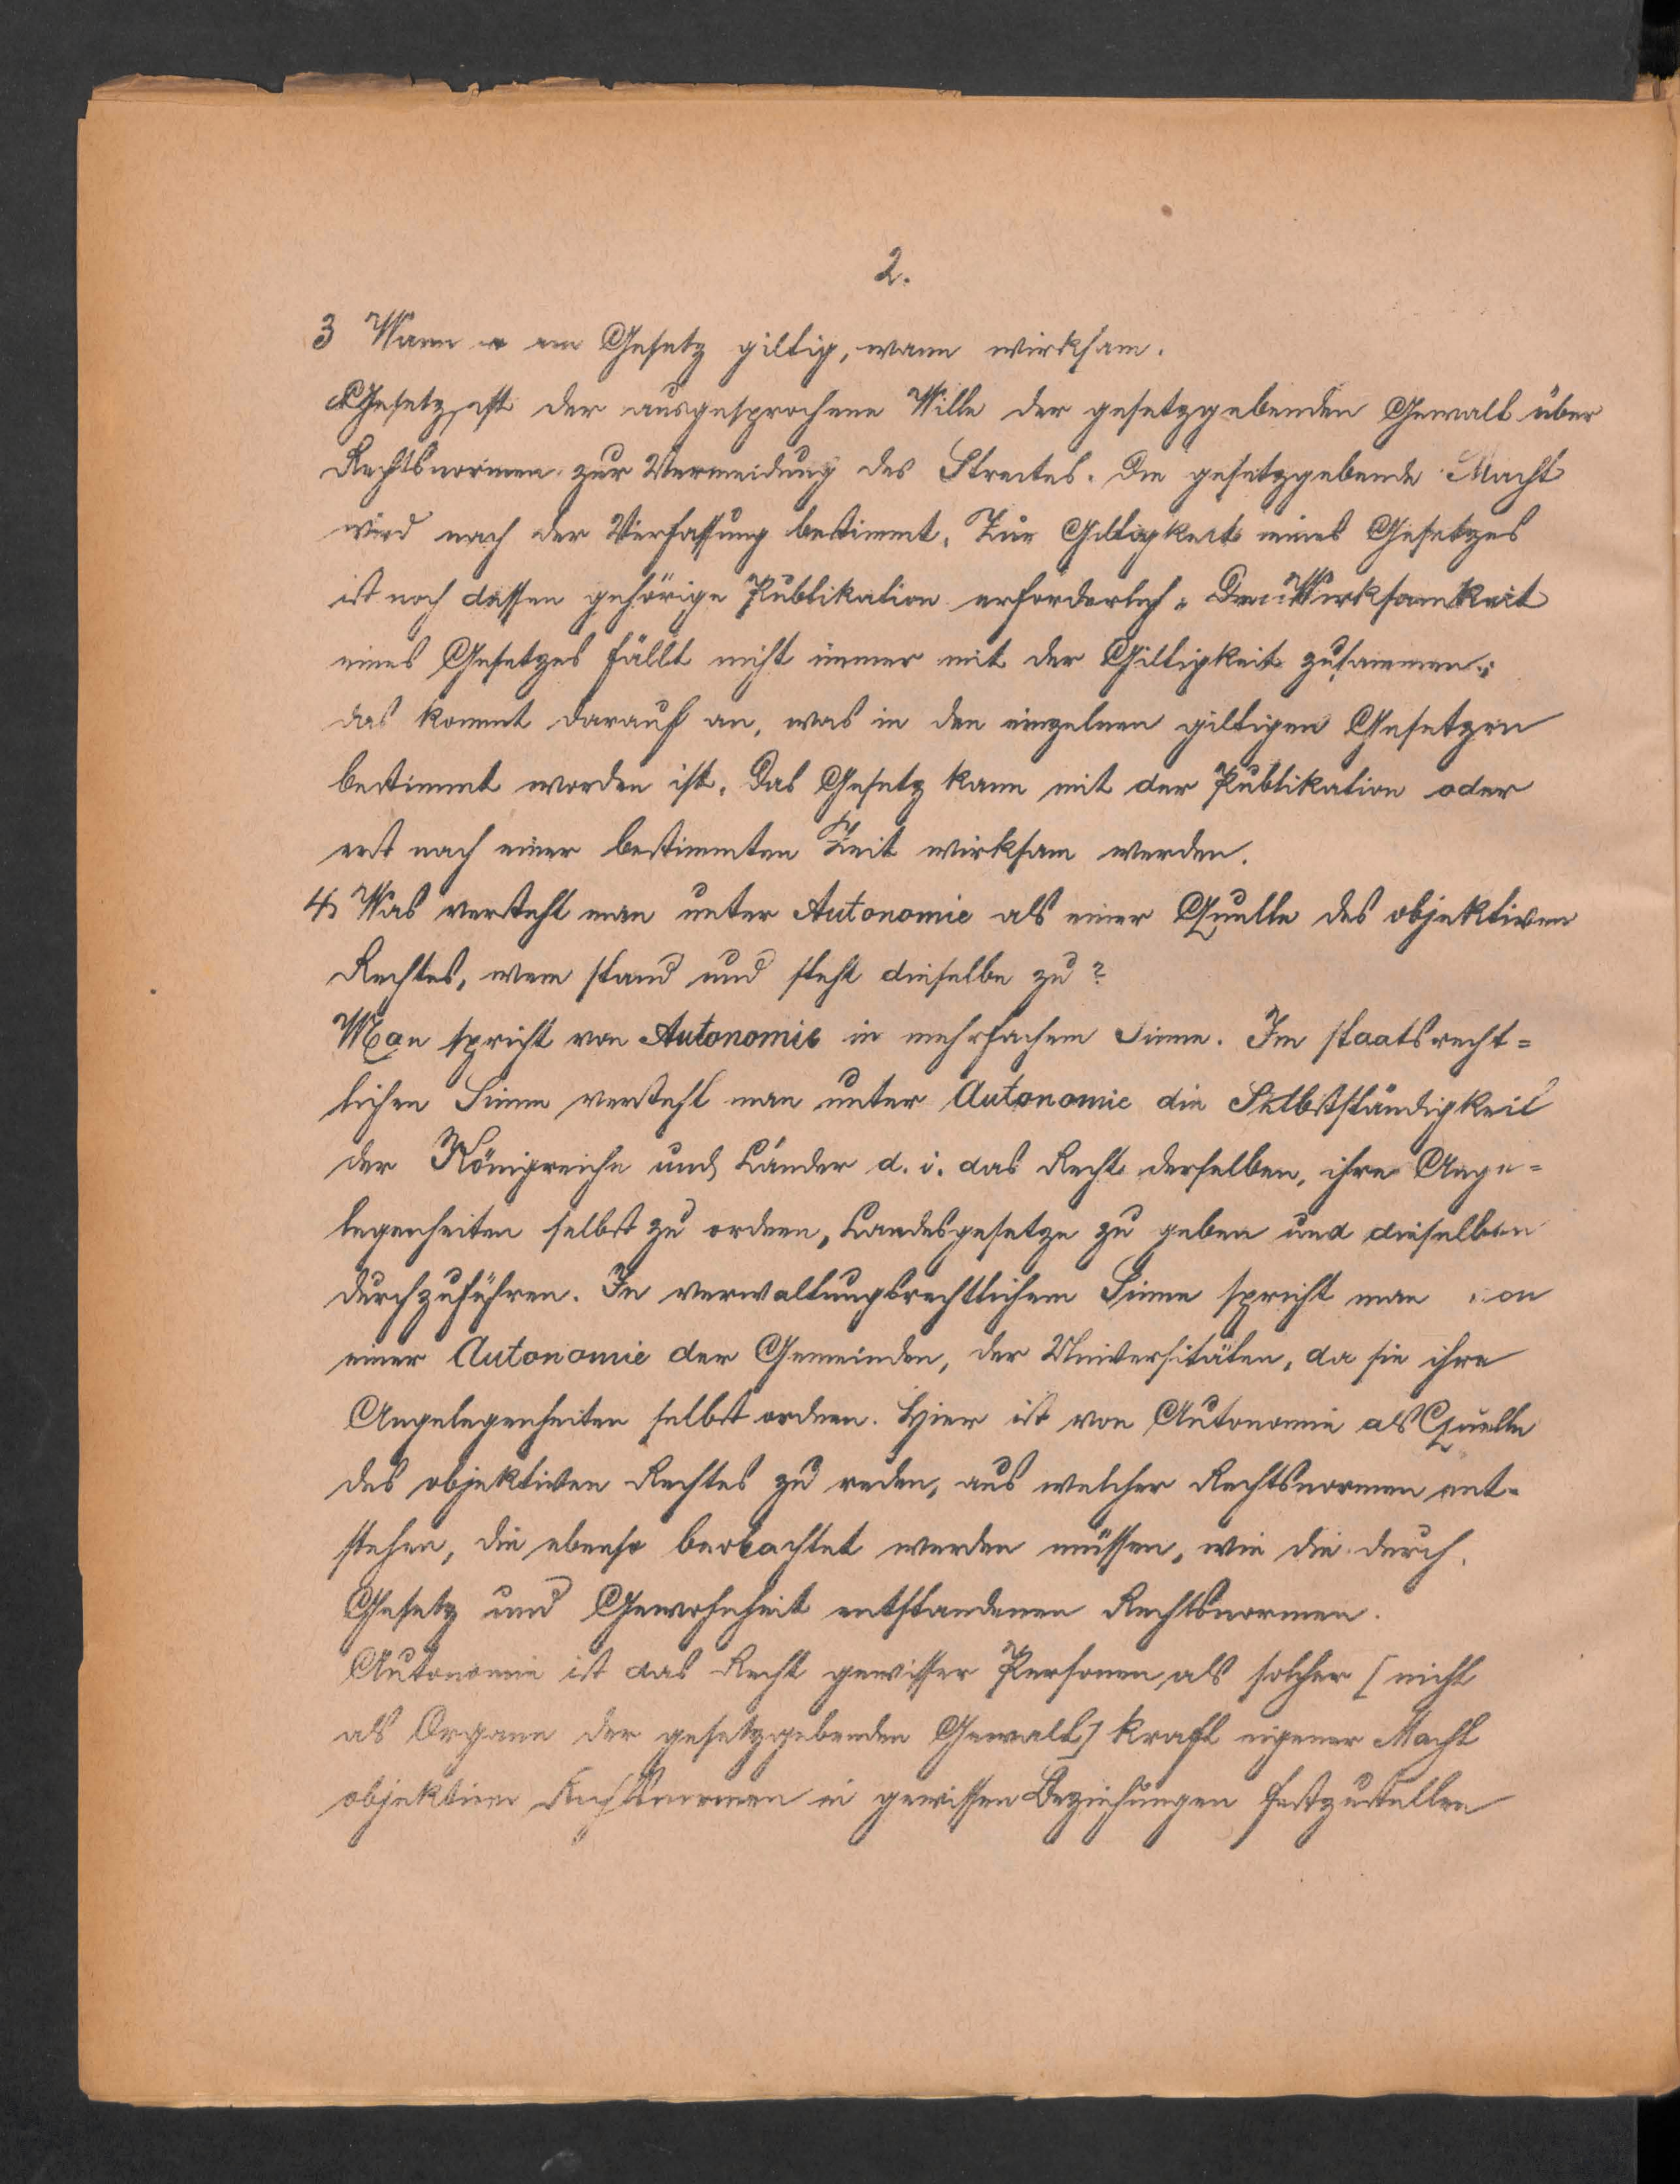 2.
3 Wann ein Gesetz giltig, wann wirksam.
Gesetz ist der ausgesprochene Wille der gesetzgebenden Gewalt über
Rechtsnormen zur Vermeidung des Streites. Die gesetzgebende Macht
wird nach der Verfassung bestimmt. Zur Giltigkeit eines Gesetzes
ist noch dessen gehörige Publikation erforderlich. Die Wirksamkeit
eines Gesetzes fällt nicht immer mit der Giltigkeit zusammen;
das kommt darauf an, was in den einzelnen giltigen Gesetzen
bestimmt worden ist. Das Gesetz kann mit der Publikation oder
erst nach einer bestimmten Zeit wirksam werden.
4, Was versteht man unter Autonomie als einer Quelle des objektiven
Rechtes, wem stand und steht dieselbe zu?
Man spricht von Autonomie in mehrfachem Sinne. Im staatsrecht=
lichen Sinne versteht man unter Autonomie die Selbstständigkeit
der Königreiche und Länder d. i. das Recht derselben, ihre Ange=
legenheiten selbst zu ordnen, Landesgesetze zu geben und dieselben
durchzuführen. In verwaltungsrechtlichem Sinne spricht man von
einer Autonomie der Gemeinden, der Universitäten, da sie ihre
Angelegenheiten selbst ordnen. Hier ist von Autonomie als Quelle
des objektiven Rechtes zu reden, aus welcher Rechtsnormen ent-
stehen, die ebenso beobachtet werden müssen, wie die durch
Gesetz und Gewohnheit entstandenen Rechtsnormen.
Autonomie ist das Recht gewisser Personen als solcher [nicht
als Organe der gesetzgebenden Gewalt] kraft eigener Macht
objektive Rechtsnormen in gewissen Beziehungen festzustellen